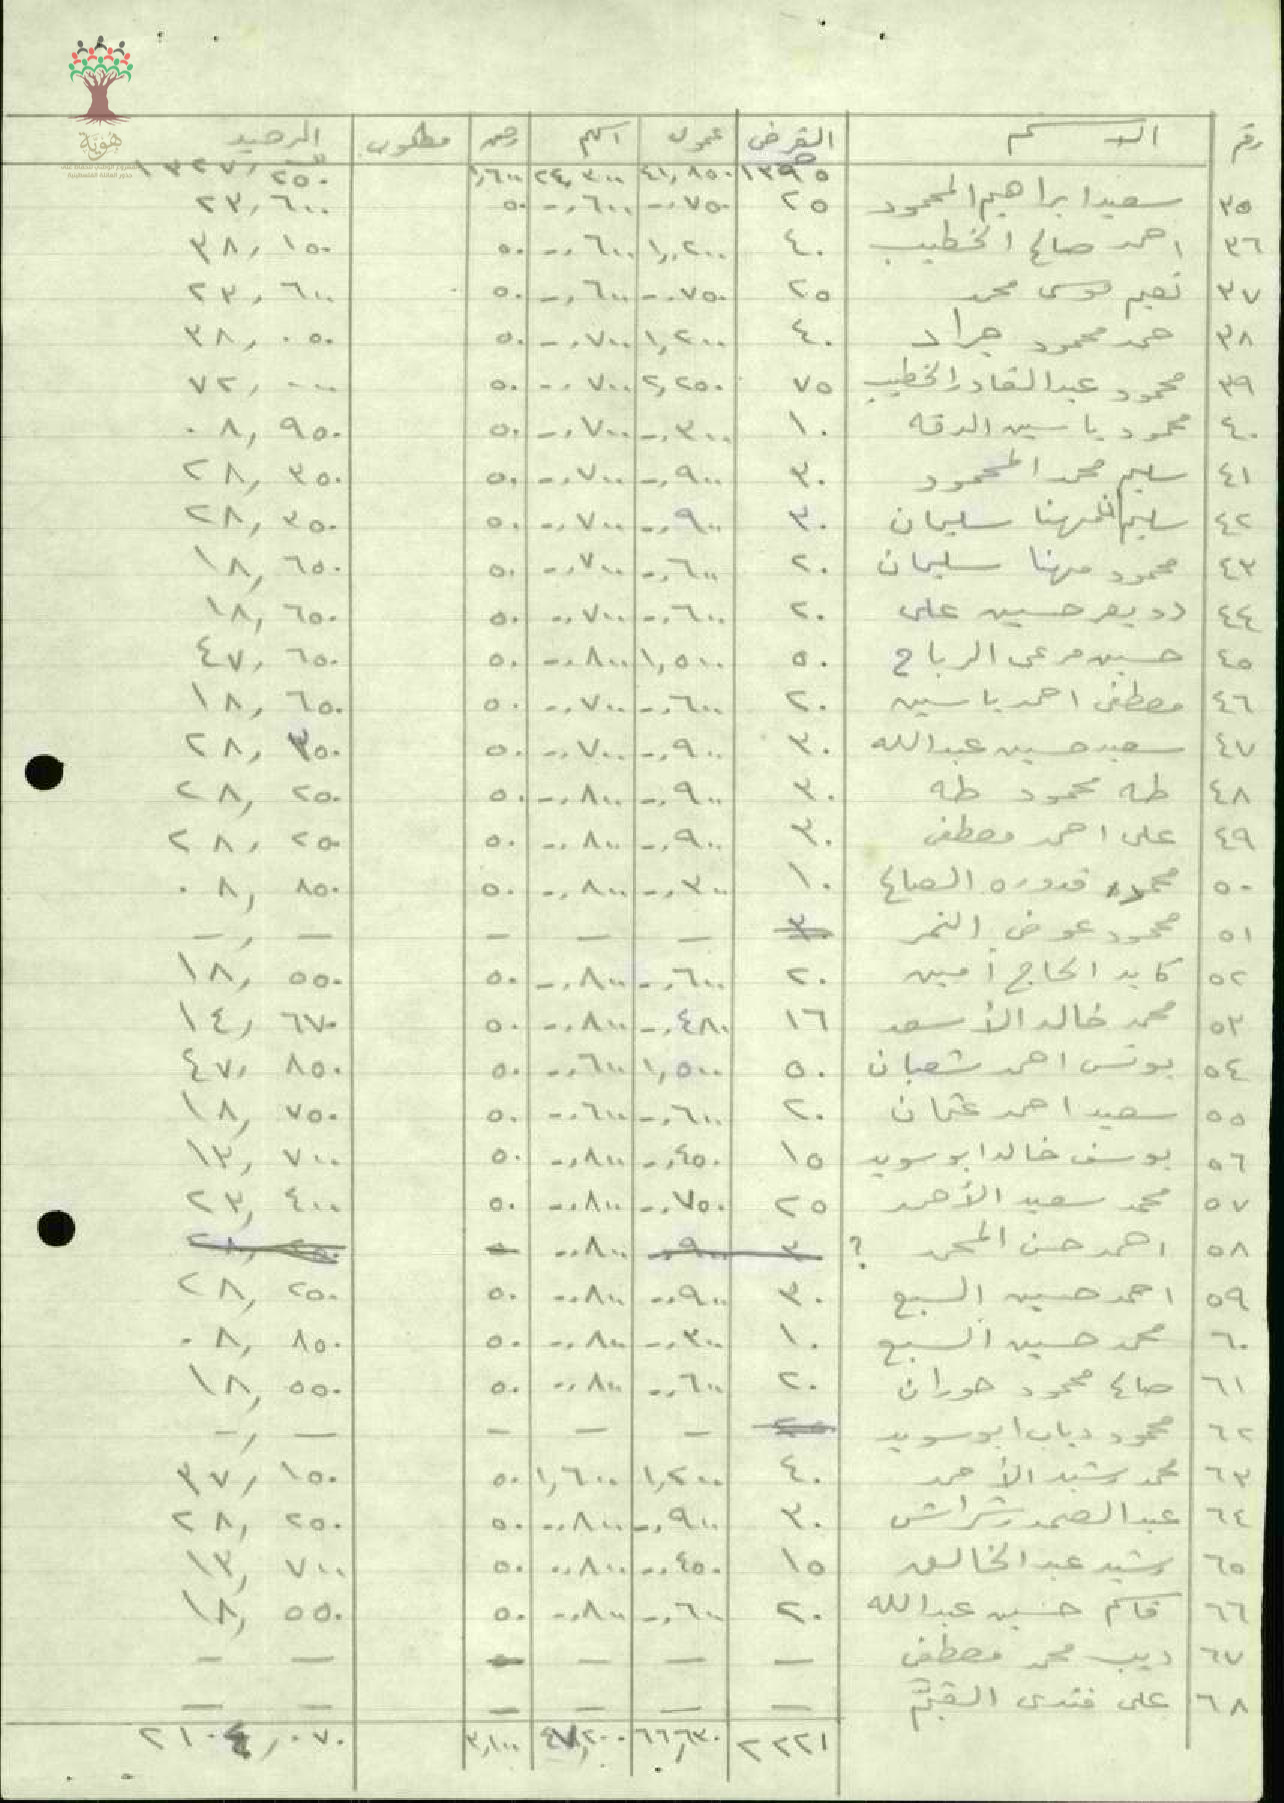 هوية
رقم الاسم القرض عمولة اسهم رصيد مطلوب الرصيد
١٣٩٥ ٤١,٨٥٠ ٢٤,٣٠٠ ١,٦٠٠ ١٣٢٧,٢٥٠
٣٥ سعيد ابراهيم المحمود ٢٥ -,٧٥٠ -,٦٠٠ ٥٠ ٢٣,٦٠٠
٣٦ احمد صالح الخطيب ٤٠ ١,٢٠٠ -,٦٠٠ ٥٠ ٣٨,١٥٠
٣٧ نعيم موسى محمد ٢٥ -,٧٥٠ -,٦٠٠ ٥٠ ٢٣,٦٠٠
٣٨ حمد محمود جراد ٤٠ ١,٢٠٠ -,٧٠٠ ٥٠ ٣٨,٠٥٠
٣٩ محمود عبد القادر الخطيب ٧٥ ٢,٢٥٠ -,٧٠٠ ٥٠ ٧٢,٠٠٠
٤٠ محمود ياسين الدقه ١٠ -,٣٠٠ -,٧٠٠ ٥٠ ٠٨,٩٥٠
٤١ سليم محمد المحمود ٣٠ -,٩٠٠ -,٧٠٠ ٥٠ ٢٨,٣٥٠
٤٢ سليم مهنا سليمان ٣٠ -,٩٠٠ -,٧٠٠ ٥٠ ٢٨,٣٥٠
٤٣ محمود مهنا سليمان ٢٠ -,٦٠٠ -,٧٠٠ ٥٠ ١٨,٦٥٠
٤٤ حسين على ٢٠ -,٦٠٠ -,٧٠٠ ٥٠ ١٨,٦٥٠
٤٥ حسين مرعى الرباح ٥٠ ١,٥٠٠ -,٨٠٠ ٥٠ ٤٧,٦٥٠
٤٦ مصطفى احمد ياسين ٢٠ -,٦٠٠ -,٧٠٠ ٥٠ ١٨,٦٥٠
٤٧ سعيد حسين عبد الله ٣٠ -,٩٠٠ -,٧٠٠ ٥٠ ٢٨,٣٥٠
٤٨ طه محمود طه ٣٠ -,٩٠٠ -,٨٠٠ ٥٠ ٢٨,٢٥٠
٤٩ على احمد مصطفى ٣٠ -,٩٠٠ -,٨٠٠ ٥٠ ٢٨,٢٥٠
٥٠ محمد قدوره الصالح ١٠ -,٣٠٠ -,٨٠٠ ٥٠ ٠٨,٨٥٠
٥١ محمود عوض النمر ٣٠ - - - -,-
٥٢ كايد الحاج أمين ٢٠ -,٦٠٠ -,٨٠٠ ٥٠ ١٨,٥٥٠
٥٣ محمد خالد الأسعد ١٦ -,٤٨٠ -,٨٠٠ ٥٠ ١٤,٦٧٠
٥٤ يونس احمد شعبان ٥٠ ١,٥٠٠ -,٦٠٠ ٥٠ ٤٧,٨٥٠
٥٥ سعيد احمد عثمان ٢٠ -,٦٠٠ -,٦٠٠ ٥٠ ١٨,٧٥٠
٥٦ يوسف خالد ابو سويد ١٥ -,٤٥٠ -,٨٠٠ ٥٠ ١٣,٧٠٠
٥٧ محمد سعيد الأحمد ٢٥ -,٧٥٠ -,٨٠٠ ٥٠ ٢٣,٤٠٠
٥٨ احمد حسن المحمد ؟ ٣٠ -,٩٠٠ -,٨٠٠ ٥٠ ٢٨,٢٥٠
٥٩ احمد حسين السبع ٣٠ -,٩٠٠ -,٨٠٠ ٥٠ ٢٨,٢٥٠
٦٠ محمد حسين السبع ١٠ -,٣٠٠ -,٨٠٠ ٥٠ ٠٨,٨٥٠
٦١ صالح محمود حوران ٢٠ -,٦٠٠ -,٨٠٠ ٥٠ ١٨,٥٥٠
٦٢ محمود دياب ابو سويد ٢٥ - - - -,-
٦٣ محمد رشيد الأحمد ٤٠ ١,٢٠٠ ١,٦٠٠ ٥٠ ٣٧,١٥٠
٦٤ عبد الصمد شراش ٣٠ -,٩٠٠ -,٨٠٠ ٥٠ ٢٨,٢٥٠
٦٥ رشيد عبد الخالق ١٥ -,٤٥٠ -,٨٠٠ ٥٠ ١٣,٧٠٠
٦٦ قاسم حسين عبد الله ٢٠ -,٦٠٠ -,٨٠٠ ٥٠ ١٨,٥٥٠
٦٧ ديب محمد مصطفى - - - - - -
٦٨ على فندى القيّم - - - - - -
٢٢٢١ ٦٦,٦٣٠ ٤٧,٢٠٠ ٣,١٠٠ ٢١٠٤,٠٧٠